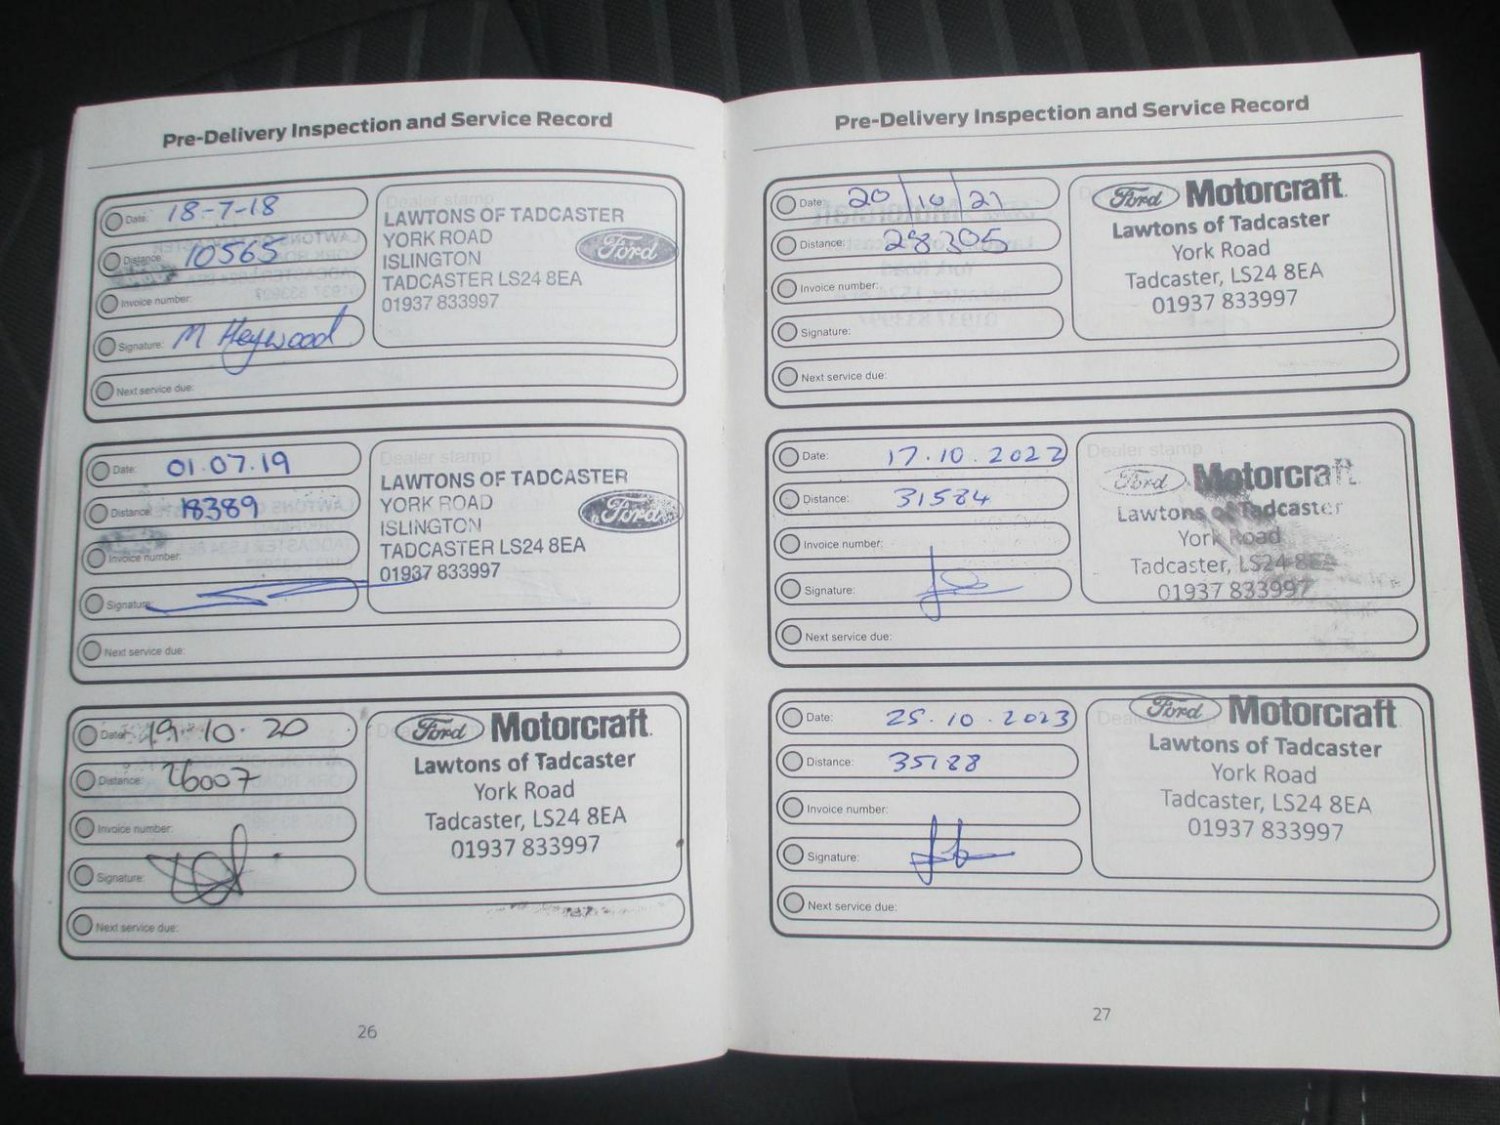 Pre-Delivery Inspection and Service Record
Date: 18-7-18
Distance: 10565
Invoice number:
Signature: M Heywood
Next service due:
LAWTONS OF TADCASTER
YORK ROAD
ISLINGTON
TADCASTER LS24 8EA
01937 833997
Ford
Date: 01.07.19
Distance: 18389
Invoice number:
Signature:
Next service due:
Dealer stamp
LAWTONS OF TADCASTER
YORK ROAD
ISLINGTON
TADCASTER LS24 8EA
01937 833997
Ford
Date: 19.10.20
Distance: 26007
Invoice number:
Signature:
Next service due:
Ford Motorcraft
Lawtons of Tadcaster
York Road
Tadcaster, LS24 8EA
01937 833997
26
Pre-Delivery Inspection and Service Record
Date: 20/10/21
Distance: 28205
Invoice number:
Signature:
Next service due:
Ford Motorcraft
Lawtons of Tadcaster
York Road
Tadcaster, LS24 8EA
01937 833997
Date: 17.10.2022
Distance: 31584
Invoice number:
Signature:
Next service due:
Dealer stamp
Ford Motorcraft
Lawtons of Tadcaster
York Road
Tadcaster, LS24 8EA
01937 833997
Date: 25.10.2023
Distance: 35188
Invoice number:
Signature:
Next service due:
Ford Motorcraft
Lawtons of Tadcaster
York Road
Tadcaster, LS24 8EA
01937 833997
27